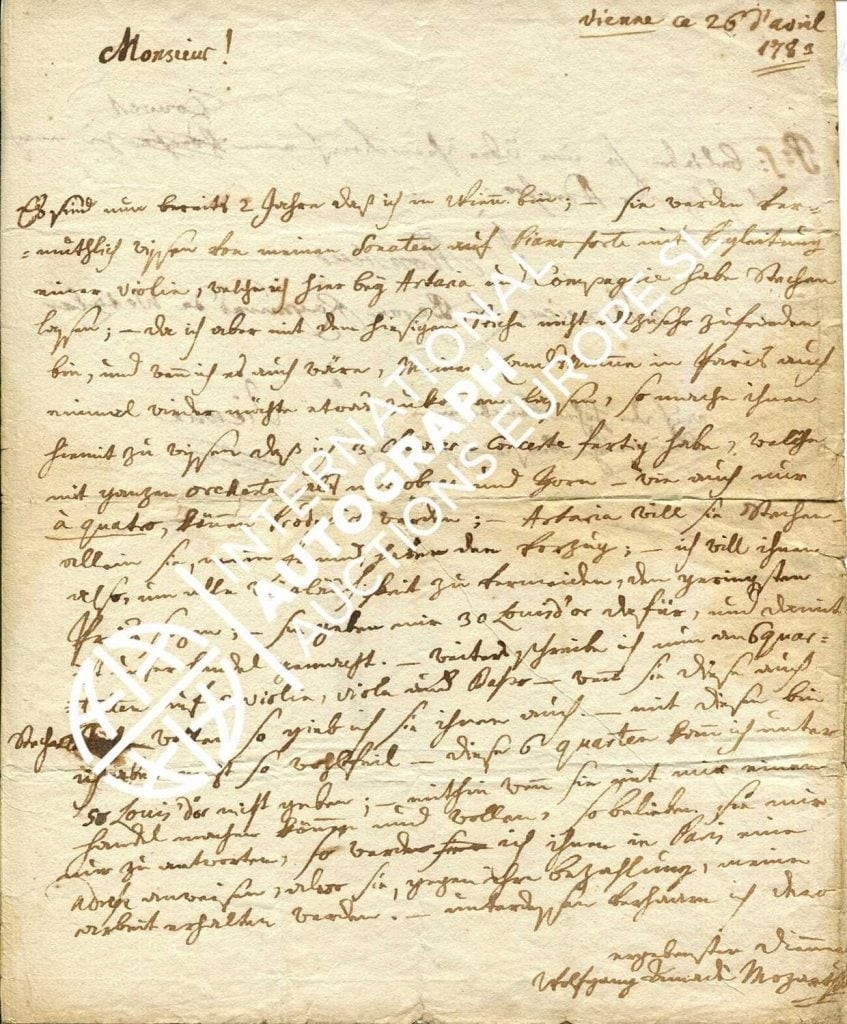 vienne ce 26 d'avril
1783
Monsieur!
Es sind nun bereits 2 Jahre daß ich in Wienn bin; – sie werden ver=
=muthlich wissen von meinen Sonaten auf Piano forte mit begleitung
einer Violin, welche ich hier bey Artaria und Compagnie habe Stechen
lassen; – da ich aber mit dem hiesigen Stiche nicht allzusehr zufrieden
bin, und wenn ich es auch wäre, Meinem in Paris auch
einmal wieder möchte etwas zukommen lassen, so mache ihnen
hiemit zu wissen daß ich 3 Clavier-Concerte fertig habe, welche
mit ganzen orchester, oboen und Horn – wie auch nur
à quatro, können Producirt werden; – Artaria will sie Stechen.
allein sie, mein haben den vorzug; – ich will ihnen
also, um alle Weitläufigkeit zu vermeiden, den geringsten
Preis sagen; – sie geben mir 30 Louis d'or dafür, und damit
ist unser handel gemacht. – weiters schreibe ich nun an 6 quar=
=tetten auf 2 violin, viola und Basso – wenn sie diese auch
Stechen wollen so gieb ich sie ihnen auch. – mit diesen bin
ich aber nicht so wohlfeil – diese 6 quartetten kann ich unter
50 Louis d'or nicht geben; – mithin wenn sie mit mir einen
handel machen können und wollen, so belieben sie mir
nur zu antworten, so werde ich ihnen in Paris eine
adresse anweisen, allwo sie, gegen ihre bezahlung, meine
arbeit erhalten werden. – unterdessen verharre ich dero
ergebenster Diener
Wolfgang Amadè Mozart
INTERNATIONAL
AUTOGRAPH
AUCTIONS EUROPE SL